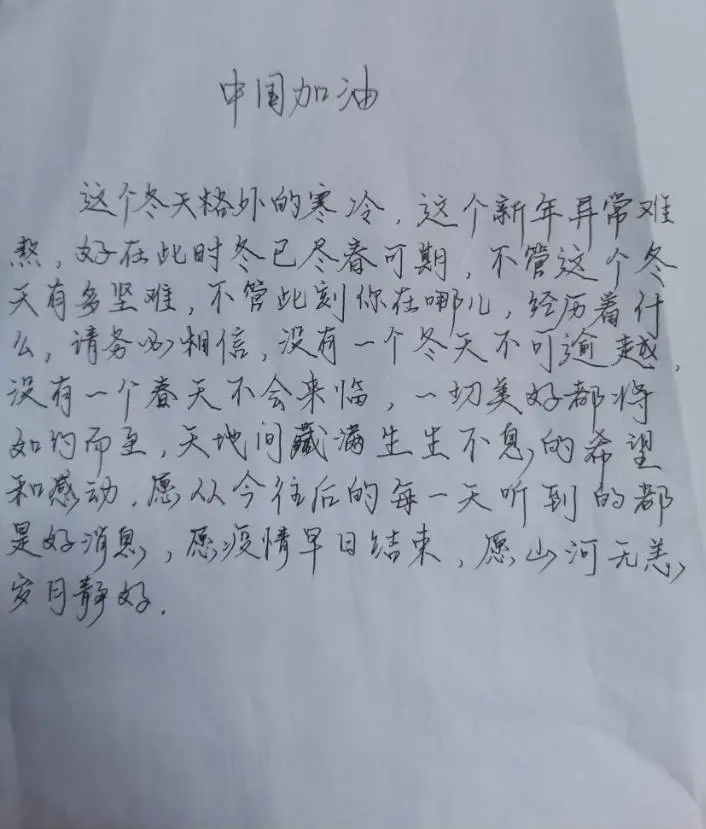 中国加油
这个冬天格外的寒冷，这个新年异常难
熬，好在此时冬已尽春可期，不管这个冬
天有多坚难，不管此刻你在哪儿，经历着什
么，请务必相信，没有一个冬天不可逾越，
没有一个春天不会来临，一切美好都将
如约而至，天地间藏满生生不息的希望
和感动，愿从今往后的每一天听到的都
是好消息，愿疫情早日结束，愿山河无恙
岁月静好.